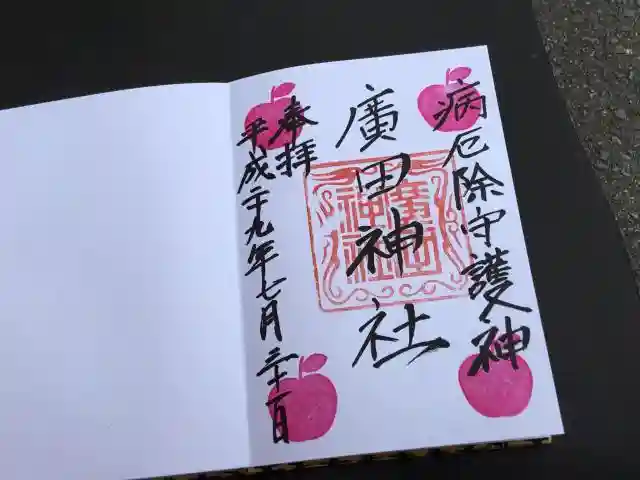 病厄除守護神
廣田神社
廣田
神社
奉拝
平成二十九年七月三十一日